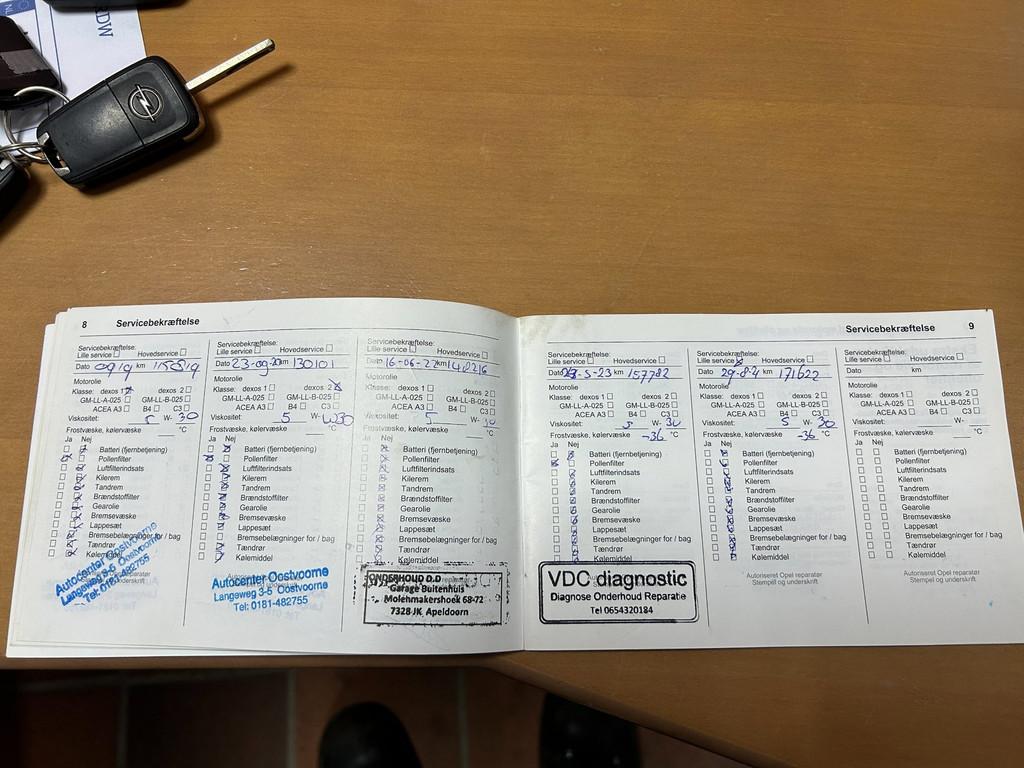 RDW
8 Servicebekræftelse
Servicebekræftelse:
Lille service Hovedservice
Dato 0919 km 115819
Motorolie
Klasse: dexos 1 dexos 2
GM-LL-A-025 GM-LL-B-025
ACEA A3 B4 C3
Viskositet: 5 W- 30
Frostvæske, kølervæske °C
Ja Nej
Batteri (fjernbetjening)
Pollenfilter
Luftfilterindsats
Kilerem
Tandrem
Brændstoffilter
Gearolie
Bremsevæske
Lappesæt
Bremsebelægninger for / bag
Tændrør
Kølemiddel
Autocenter Oostvoorne
Langeweg 3-5 Oostvoorne
Tel: 0181-482755
Servicebekræftelse:
Lille service Hovedservice
Dato 23-09-20 km 130101
Motorolie
Klasse: dexos 1 dexos 2
GM-LL-A-025 GM-LL-B-025
ACEA A3 B4 C3
Viskositet: 5 W-
Frostvæske, kølervæske °C
Ja Nej
Batteri (fjernbetjening)
Pollenfilter
Luftfilterindsats
Kilerem
Tandrem
Brændstoffilter
Gearolie
Bremsevæske
Lappesæt
Bremsebelægninger for / bag
Tændrør
Kølemiddel
Autocenter Oostvoorne
Langeweg 3-5 Oostvoorne
Tel: 0181-482755
Servicebekræftelse:
Lille service Hovedservice
Dato 16-06-22 km 148216
Motorolie
Klasse: dexos 1 dexos 2
GM-LL-A-025 GM-LL-B-025
ACEA A3 B4 C3
Viskositet: 5 W- 30
Frostvæske, kølervæske °C
Ja Nej
Batteri (fjernbetjening)
Pollenfilter
Luftfilterindsats
Kilerem
Tandrem
Brændstoffilter
Gearolie
Bremsevæske
Lappesæt
Bremsebelægninger for / bag
Tændrør
Kølemiddel
ONDERHOUD D.D
Garage Buitenhuis
Molenmakershoek 68-72
7328 JK Apeldoorn
Servicebekræftelse 9
Servicebekræftelse:
Lille service Hovedservice
Dato -5-23 km 157782
Motorolie
Klasse: dexos 1 dexos 2
GM-LL-A-025 GM-LL-B-025
ACEA A3 B4 C3
Viskositet: 5 W- 30
Frostvæske, kølervæske -36 °C
Ja Nej
Batteri (fjernbetjening)
Pollenfilter
Luftfilterindsats
Kilerem
Tandrem
Brændstoffilter
Gearolie
Bremsevæske
Lappesæt
Bremsebelægninger for / bag
Tændrør
Kølemiddel
VDC diagnostic
Diagnose Onderhoud Reparatie
Tel 0654320184
Servicebekræftelse:
Lille service Hovedservice
Dato 29-8-24 km 171622
Motorolie
Klasse: dexos 1 dexos 2
GM-LL-A-025 GM-LL-B-025
ACEA A3 B4 C3
Viskositet: 5 W- 30
Frostvæske, kølervæske -36 °C
Ja Nej
Batteri (fjernbetjening)
Pollenfilter
Luftfilterindsats
Kilerem
Tandrem
Brændstoffilter
Gearolie
Bremsevæske
Lappesæt
Bremsebelægninger for / bag
Tændrør
Kølemiddel
Autoriseret Opel reparatør
Stempel og underskrift
Servicebekræftelse:
Lille service Hovedservice
Dato km
Motorolie
Klasse: dexos 1 dexos 2
GM-LL-A-025 GM-LL-B-025
ACEA A3 B4 C3
Viskositet: W-
Frostvæske, kølervæske °C
Ja Nej
Batteri (fjernbetjening)
Pollenfilter
Luftfilterindsats
Kilerem
Tandrem
Brændstoffilter
Gearolie
Bremsevæske
Lappesæt
Bremsebelægninger for / bag
Tændrør
Kølemiddel
Autoriseret Opel reparatør
Stempel og underskrift